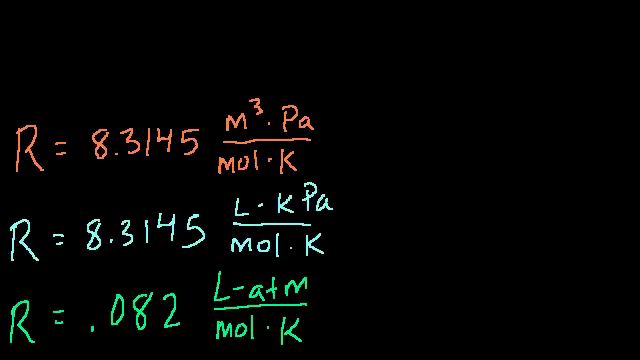 R = 8.3145 m³·Pa/mol·K
R = 8.3145 L·KPa/mol·K
R = .082 L-atm/mol·K